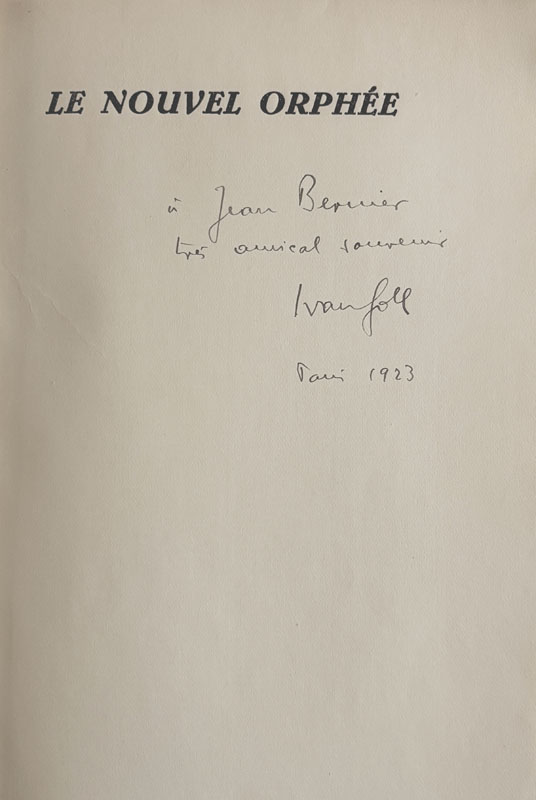 LE NOUVEL ORPHÉE
à Jean Bernier
très amical souvenir
Ivan Goll
Paris 1923